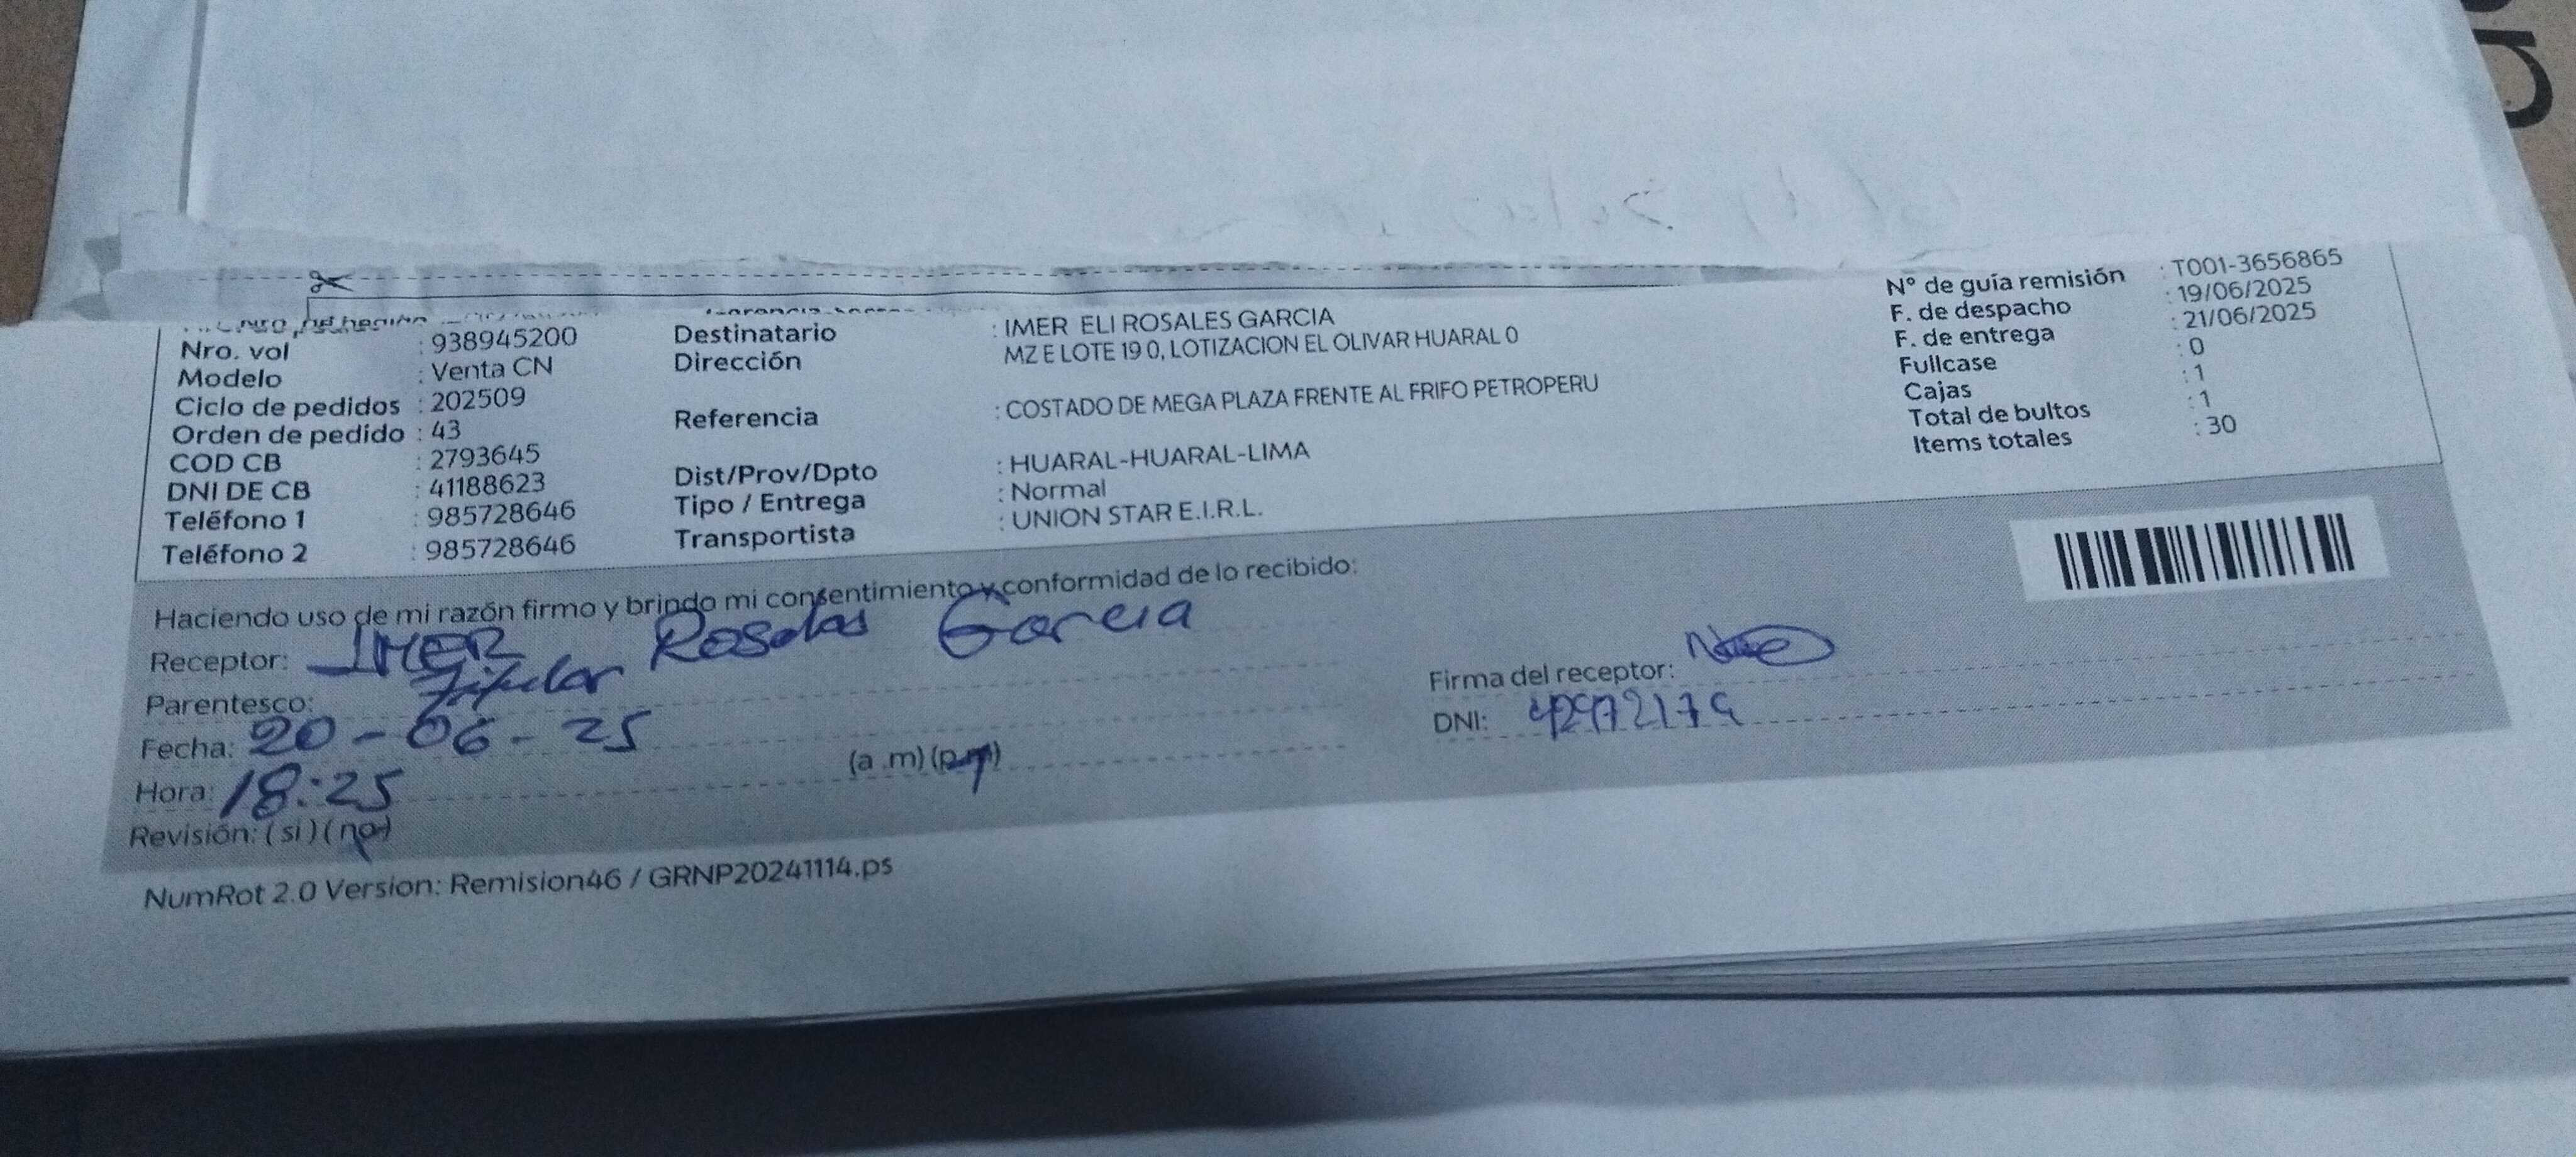 Nro. vol : 938945200
Modelo : Venta CN
Ciclo de pedidos : 202509
Orden de pedido : 43
COD CB : 2793645
DNI DE CB : 41188623
Teléfono 1 : 985728646
Teléfono 2 : 985728646
Destinatario : IMER ELI ROSALES GARCIA
Dirección MZ E LOTE 19 0, LOTIZACION EL OLIVAR HUARAL 0
Referencia : COSTADO DE MEGA PLAZA FRENTE AL FRIFO PETROPERU
Dist/Prov/Dpto : HUARAL-HUARAL-LIMA
Tipo / Entrega : Normal
Transportista : UNION STAR E.I.R.L.
N° de guía remisión : T001-3656865
F. de despacho : 19/06/2025
F. de entrega : 21/06/2025
Fullcase : 0
Cajas : 1
Total de bultos : 1
Items totales : 30
Haciendo uso de mi razón firmo y brindo mi consentimiento y conformidad de lo recibido:
Receptor: IMER Rosales Garcia
Parentesco: Titular
Fecha: 20-06-25
Hora: 18:25 (a .m) (p.m)
Revisión: ( si ) ( no )
Firma del receptor:
DNI:
NumRot 2.0 Version: Remision46 / GRNP20241114.ps